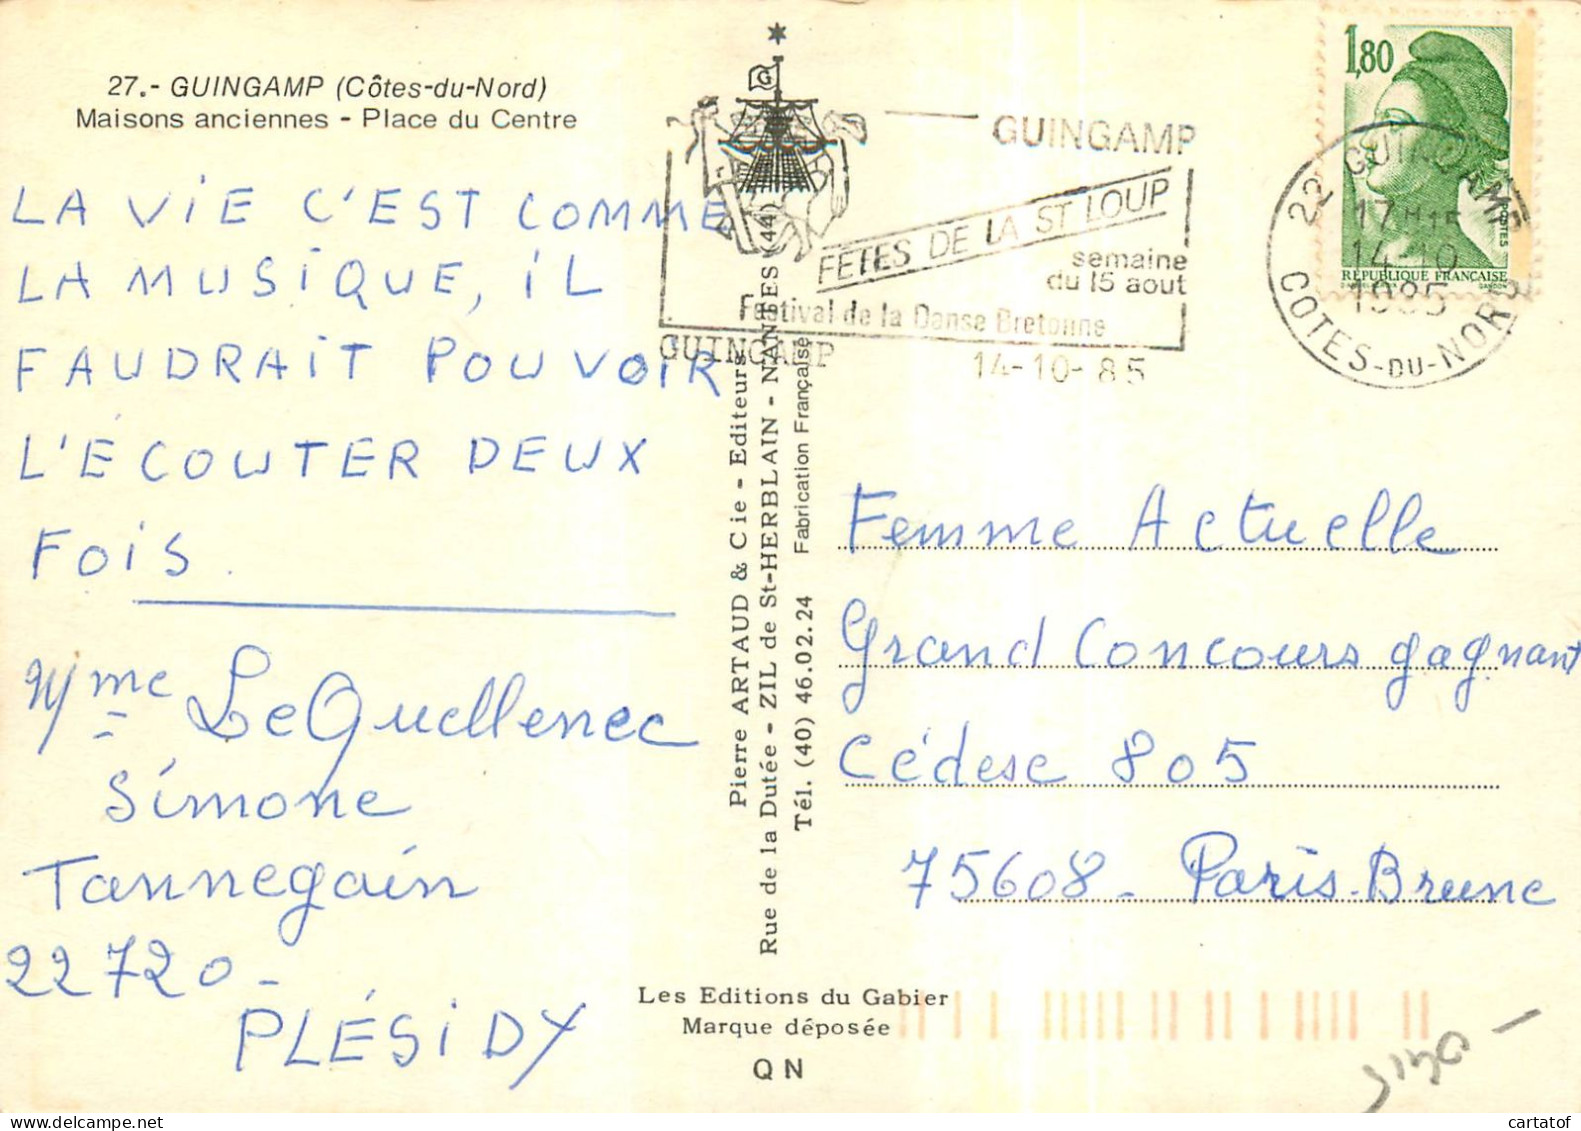 27.- GUINGAMP (Côtes-du-Nord)
Maisons anciennes - Place du Centre
LA ViE C'EST COMME
LA MUSiQUE, iL
FAUDRAiT POUVOiR
L'ÉCOUTER DEUX
FOiS.
Mme Le Quellenec
Simone
Tannegain
22720 -
PLÉSiDY
G
GUINGAMP
FÊTES DE LA ST LOUP
semaine
du 15 aout
Festival de la Danse Bretonne
GUINGAMP
14-10-85
1,80
POSTES
RÉPUBLIQUE FRANÇAISE
GANDON
22 GUINGAMP
17H15
14-10
1985
COTES-DU-NORD
Pierre ARTAUD & Cie - Editeurs
Rue de la Dutée - ZIL de St-HERBLAIN - NANTES (44)
Tél. (40) 46.02.24 Fabrication Française
Femme Actuelle
Grand Concours gagnant
Cédese 805
75608 - Paris-Brune
Les Editions du Gabier
Marque déposée
QN
cartatof